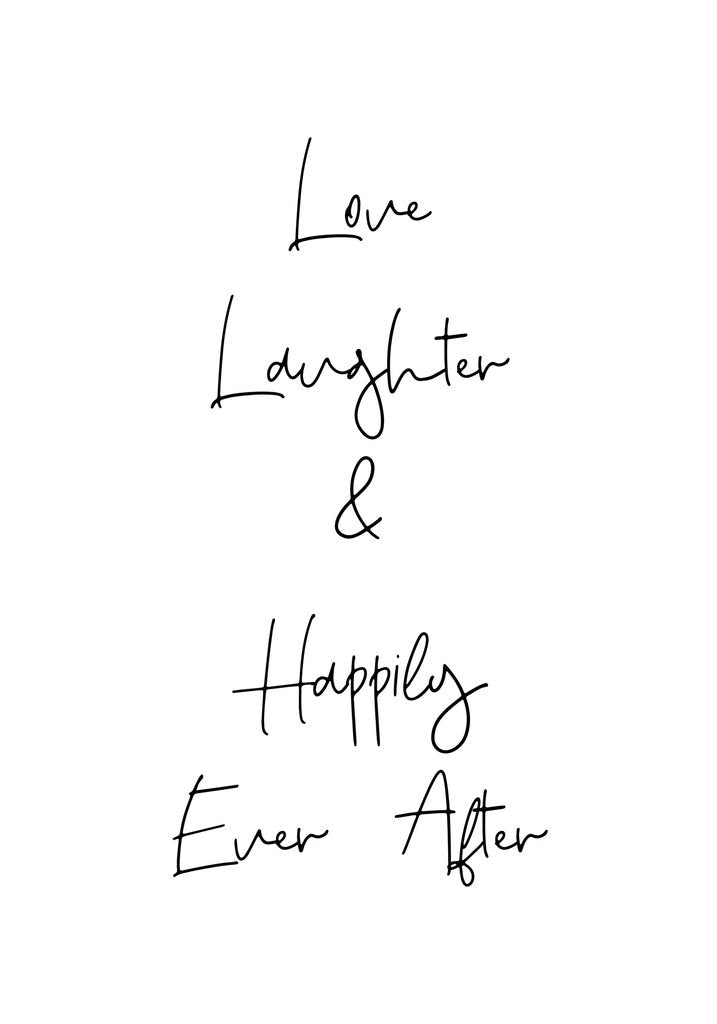 Love
Laughter
&
Happily
Ever After